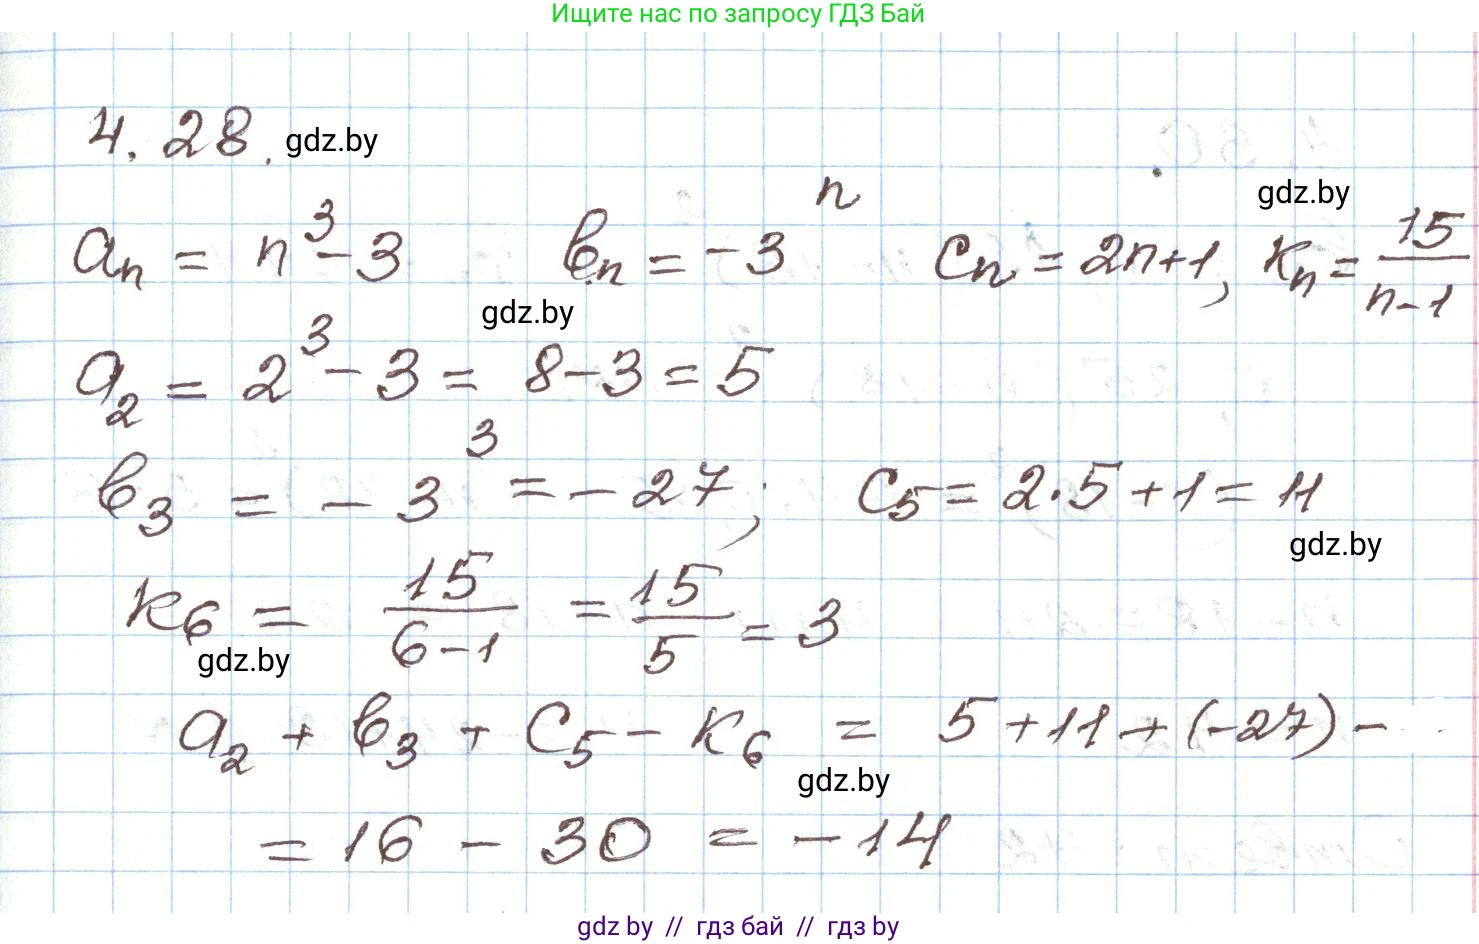 Ищите нас по запросу ГДЗ Бай
4.28. gdz.by
gdz.by
aₙ = n³ - 3   bₙ = -3ⁿ   cₙ = 2n+1, kₙ = 15/(n-1)
gdz.by
a₂ = 2³ - 3 = 8 - 3 = 5
b₃ = - 3³ = - 27; c₅ = 2·5 + 1 = 11
gdz.by
k₆ = 15/(6-1) = 15/5 = 3
gdz.by
a₂ + b₃ + c₅ - k₆ = 5 + 11 + (-27) -
gdz.by
= 16 - 30 = - 14
gdz by // гдз бай // gdz by